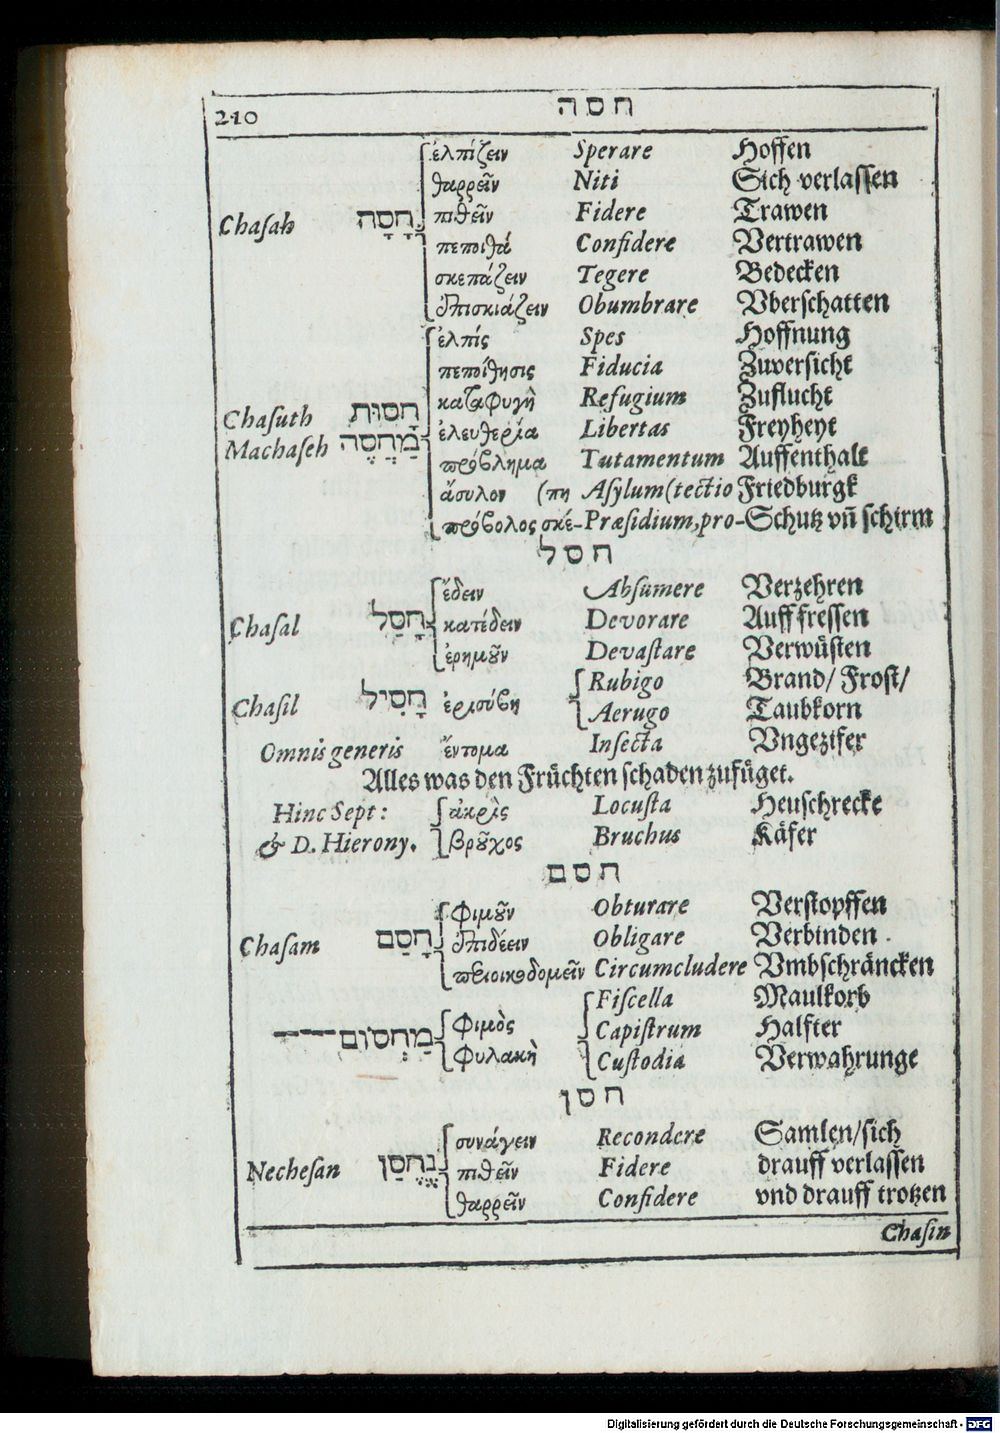 210 חסה
ἐλπίζειν Sperare Hoffen
θαρρεῖν Niti Sich verlassen
Chasah חָסָה πιθεῖν Fidere Trawen
πεποιθά Confidere Vertrawen
σκεπάζειν Tegere Bedecken
ἐπισκιάζειν Obumbrare Vberschatten
ἐλπίς Spes Hoffnung
πεποίθησις Fiducia Zuversicht
Chasuth חָסוּת καταφυγὴ Refugium Zuflucht
Machaseh מַחֲסֶה ἐλευθερία Libertas Freyheyt
πρόβλημα Tutamentum Auffenthalt
ἄσυλον (πη Asylum (tectio Friedburgk
πρόβολος σκέ- Præsidium, pro- Schutz vñ schirm
חסל
ἔδειν Absumere Verzehren
Chasal חָסַל κατέδειν Devorare Auff fressen
ἐρημοῦν Devastare Verwüsten
Rubigo Brand/ Frost/
Chasil חָסִיל ἐρισύβη Aerugo Taubkorn
Omnis generis ἔντομα Insecta Vngezifer
Alles was den Früchten schaden zufüget.
Hinc Sept: ἀκρὶς Locusta Heuschrecke
& D. Hierony. βροῦχος Bruchus Käfer
חסם
φιμοῦν Obturare Verstopffen
Chasam חָסַם ἐπιδέειν Obligare Verbinden
περιοικοδομεῖν Circumcludere Vmbschräncken
Fiscella Maulkorb
מַחְסוֹם φιμὸς Capistrum Halfter
φυλακὴ Custodia Verwahrunge
חסן
συνάγειν Recondere Samlen/sich
Nechesan נֶחֱסַן πιθεῖν Fidere drauff verlassen
θαρρεῖν Confidere vnd drauff trotzen
Chasin
Digitalisierung gefördert durch die Deutsche Forschungsgemeinschaft - DFG